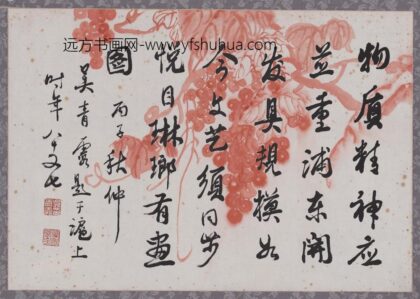 远方书画网--www.yfshuhua.com
物质精神应
并重浦东开
发具規模如
今文艺须同步
悦目琳瑯有画
图
丙子秋仲
吴青霞题于滬上
时年八十又七